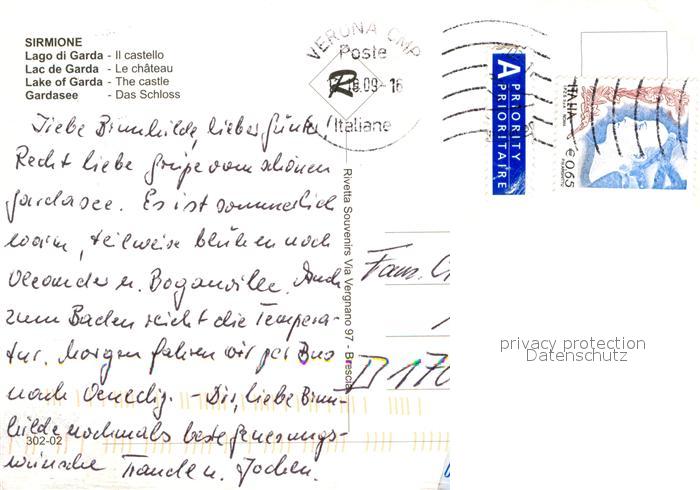 SIRMIONE
Lago di Garda - Il castello
Lac de Garda - Le château
Lake of Garda - The castle
Gardasee - Das Schloss
VERONA CMP
Poste
16.09-16
Italiane
A PRIORITY
PRIORITAIRE
ITALIA
€0,65
Liebe Brunhilde, lieber Günter!
Recht liebe Grüße vom schönen
Gardasee. Es ist sommerlich
warm, teilweise blühen noch
Oleander u. Boganville. Auch
zum Baden reicht die Tempera-
tur. Morgen fahren wir per Bus
nach Venedig. - Dir, liebe Brun-
hilde nochmals beste Genesungs-
wünsche Traude u. Jochen.
302-02
Rivetta Souvenirs Via Vergnano 97 - Brescia
Fam. G
D 170
privacy protection
Datenschutz